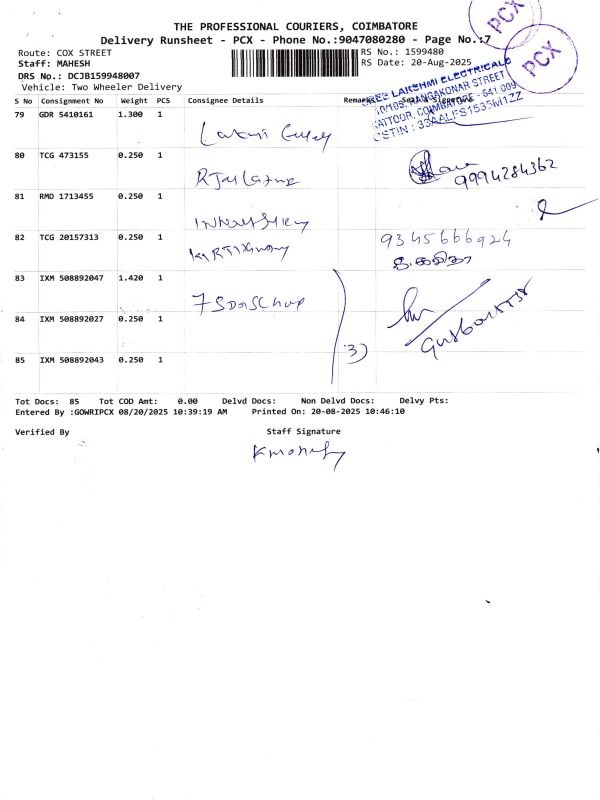 THE PROFESSIONAL COURIERS, COIMBATORE
Delivery Runsheet - PCX - Phone No.:9047080280 - Page No.:7
PCX
PCX
Route: COX STREET
RS No.: 1599480
Staff: MAHESH
RS Date: 20-Aug-2025
DRS No.: DCJB159948007
Vehicle: Two Wheeler Delivery
SREE LAKSHMI ELECTRICALS
10/105, RANGAKONAR STREET
KATTOOR, COIMBATORE - 641 009
GSTIN : 33AALFS1535M1ZZ
S No Consignment No Weight PCS Consignee Details Remarks Seal & Signature
79 GDR 5410161 1.300 1
80 TCG 473155 0.250 1
9994284362
81 RMD 1713455 0.250 1
82 TCG 20157313 0.250 1
9345666924
83 IXM 508892047 1.420 1
84 IXM 508892027 0.250 1
3)
85 IXM 508892043 0.250 1
Tot Docs: 85 Tot COD Amt: 0.00 Delvd Docs: Non Delvd Docs: Delvy Pts:
Entered By :GOWRIPCX 08/20/2025 10:39:19 AM Printed On: 20-08-2025 10:46:10
Verified By Staff Signature